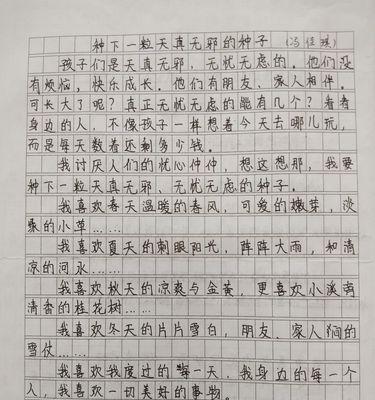 种下一粒天真无邪的种子 (冯佳琪)
孩子们是天真无邪，无忧无虑的。他们没
有烦恼，快乐成长。他们有朋友、家人相伴。
可长大了呢？真正无忧无虑的能有几个？看看
身边的人，不像孩子一样想着今天去哪儿玩，
而是每天数着还剩多少钱。
我讨厌人们的忧心忡忡，想这想那，我要
种下一粒天真无邪、无忧无虑的种子。
我喜欢春天温暖的春风，可爱的嫩芽，淡
的小草……
我喜欢夏天的刺眼阳光，阵阵大雨，和清
凉的河水……
我喜欢秋天的凉爽与金黄，更喜欢小溪旁
清香的桂花树……
我喜欢冬天的片片雪白，朋友、家人间的
雪仗……
我喜欢我度过的每一天，我身边的每一个
人，我喜欢一切美好的事物。